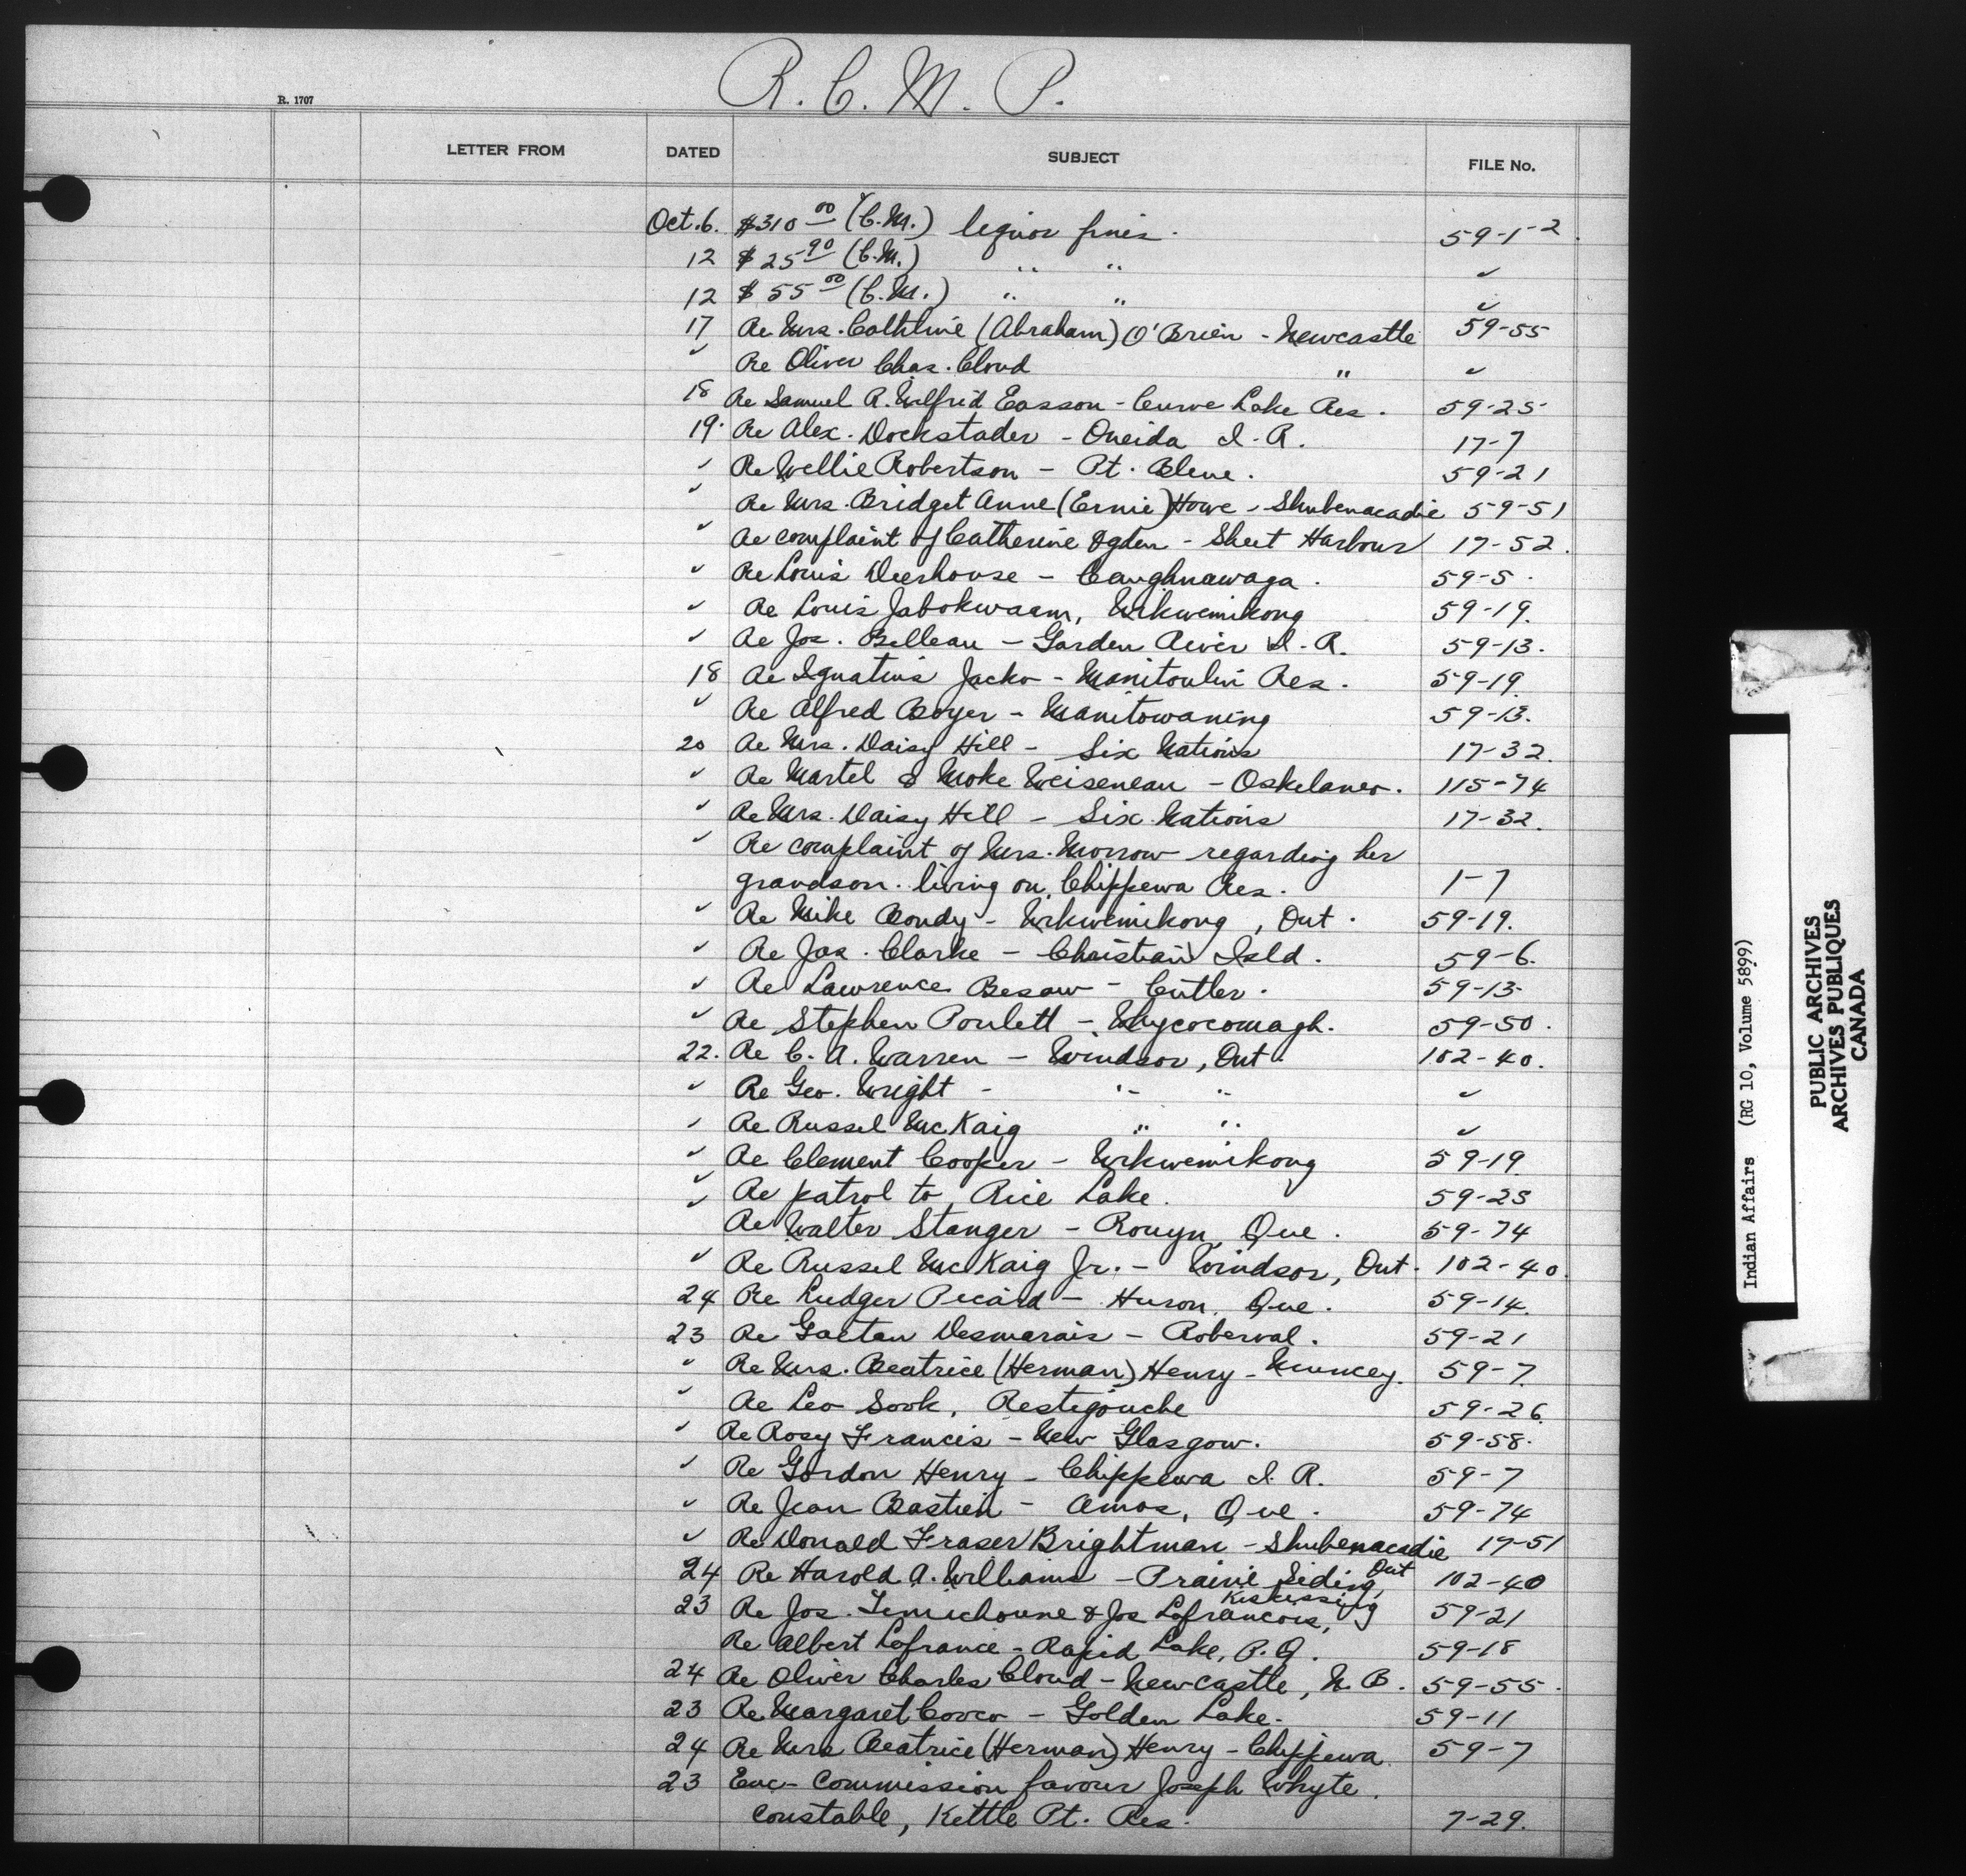 R. C. M. P.
R. 1707
LETTER FROM DATED SUBJECT FILE No.
Oct. 6. $310 00 (C.M.) liquor fines. 59-1-2.
12 $ 25 90 (C.M.) " " ✓
12 $ 55 00 (C.M.) " " ✓
17 Re Mrs. (Abraham) O'Brien - Newcastle 59-55
✓ Re Oliver Chas. Cloud " ✓
18 Re Samuel R. Wilfrid Easson - Curve Lake Res. 59-25
19. Re Alex. Dockstader - Oneida I. R. 17-7
✓ Re Wellie Robertson - Pt. Bleue. 59-21
✓ Re Mrs. Bridget Anne (Ernie) Howe - Shubenacadie 59-51
✓ Re complaint of Catherine Ogden - Sheet Harbour 17-52.
✓ Re Louis Deerhouse - Caughnawaga. 59-5.
✓ Re Louis Jabokwaam, Wikwemikong 59-19.
✓ Re Jos. Belleau - Garden River I. R. 59-13.
18 Re Ignatius Jacko - Manitoulin Res. 59-19.
✓ Re Alfred Boyer - Manitowaning 59-13.
20 Re Mrs. Daisy Hill - Six Nations 17-32.
✓ Re Martel & Moke Weiseneau - Oskelaneo. 115-74
✓ Re Mrs. Daisy Hill - Six Nations 17-32.
✓ Re complaint of Mrs. Morrow regarding her
grandson. living on Chippewa Res. 1-7
✓ Re Mike Bondy - Wikwemikong, Ont. 59-19.
✓ Re Jas. Clarke - Christian Isld. 59-6.
✓ Re Lawrence Besaw - Cutler. 59-13
✓ Re Stephen Poulett - Whycocomagh. 59-50.
22. Re C. A. Warren - Windsor, Ont. 102-40.
✓ Re Geo. Wright - " " ✓
✓ Re Russel McKaig " " ✓
✓ Re Clement Cooper - Wikwemikong 59-19
✓ Re patrol to Rice Lake. 59-23
✓ Re Walter Stanger - Rouyn, Que. 59-74
✓ Re Russel McKaig Jr. - Windsor, Ont. 102-40.
24 Re Ludger Picard - Huron, Que. 59-14.
23 Re Gaetan Desmarais - Roberval. 59-21
✓ Re Mrs. Beatrice (Herman) Henry - Muncey. 59-7.
✓ Re Leo Sook, Restigouche 59-26.
✓ Re Rosy Francis - New Glasgow. 59-58.
✓ Re Gordon Henry - Chippewa I. R. 59-7
✓ Re Jean Bastien - Amos, Que. 59-74
✓ Re Donald Fraser Brightman - Shubenacadie 17-51
24 Re Harold A. Williams - Prairie Siding, Ont 102-40
23 Re Jos. & Jos Lafrancois, Kiskissing 59-21
Re Albert Lafrance - Rapid Lake, P. Q. 59-18
24 Re Oliver Charles Cloud - Newcastle, N. B. 59-55.
23 Re Margaret Cooco - Golden Lake. 59-11
24 Re Mrs Beatrice (Herman) Henry - Chippewa. 59-7
23 Enc- Commission favour Joseph Whyte.
constable, Kettle Pt. Res. 7-29.
Indian Affairs (RG 10, Volume 5899)
PUBLIC ARCHIVES
ARCHIVES PUBLIQUES
CANADA